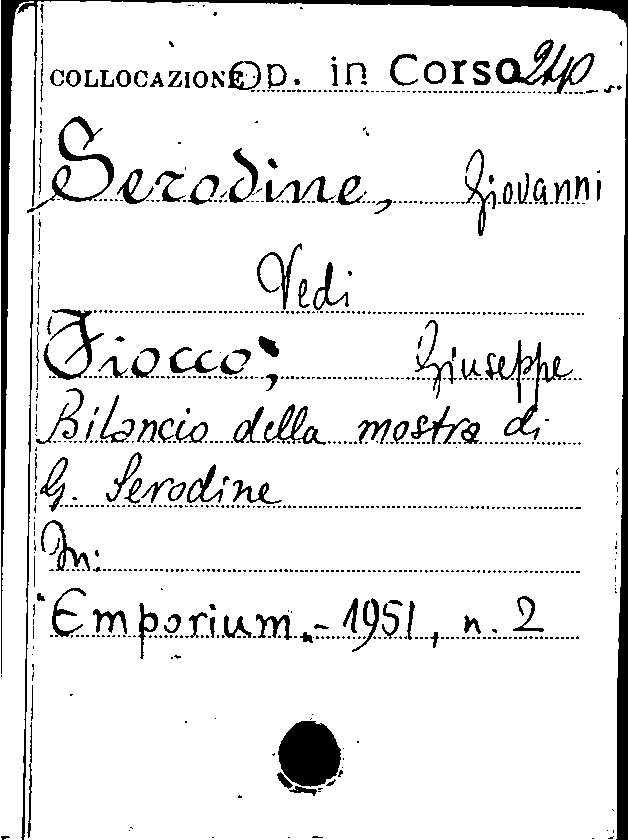 COLLOCAZIONE Op. in Corso 240
Serodine, Giovanni
Vedi
Fiocco, Giuseppe
Bilancio della mostra di
G. Serodine
In:
"Emporium" - 1951, n. 2